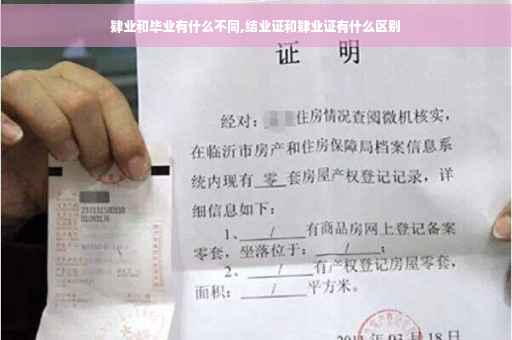 肄业和毕业有什么不同,结业证和肄业证有什么区别
证 明
经对: 住房情况查阅微机核实,
在临沂市房产和住房保障局档案信息系
统内现有 零 套房屋产权登记记录,详
细信息如下:
1、 / 有商品房网上登记备案
零套,坐落位于: / ;
2、 / 有产权登记房屋零套,
面积: / 平方米。
03月18日